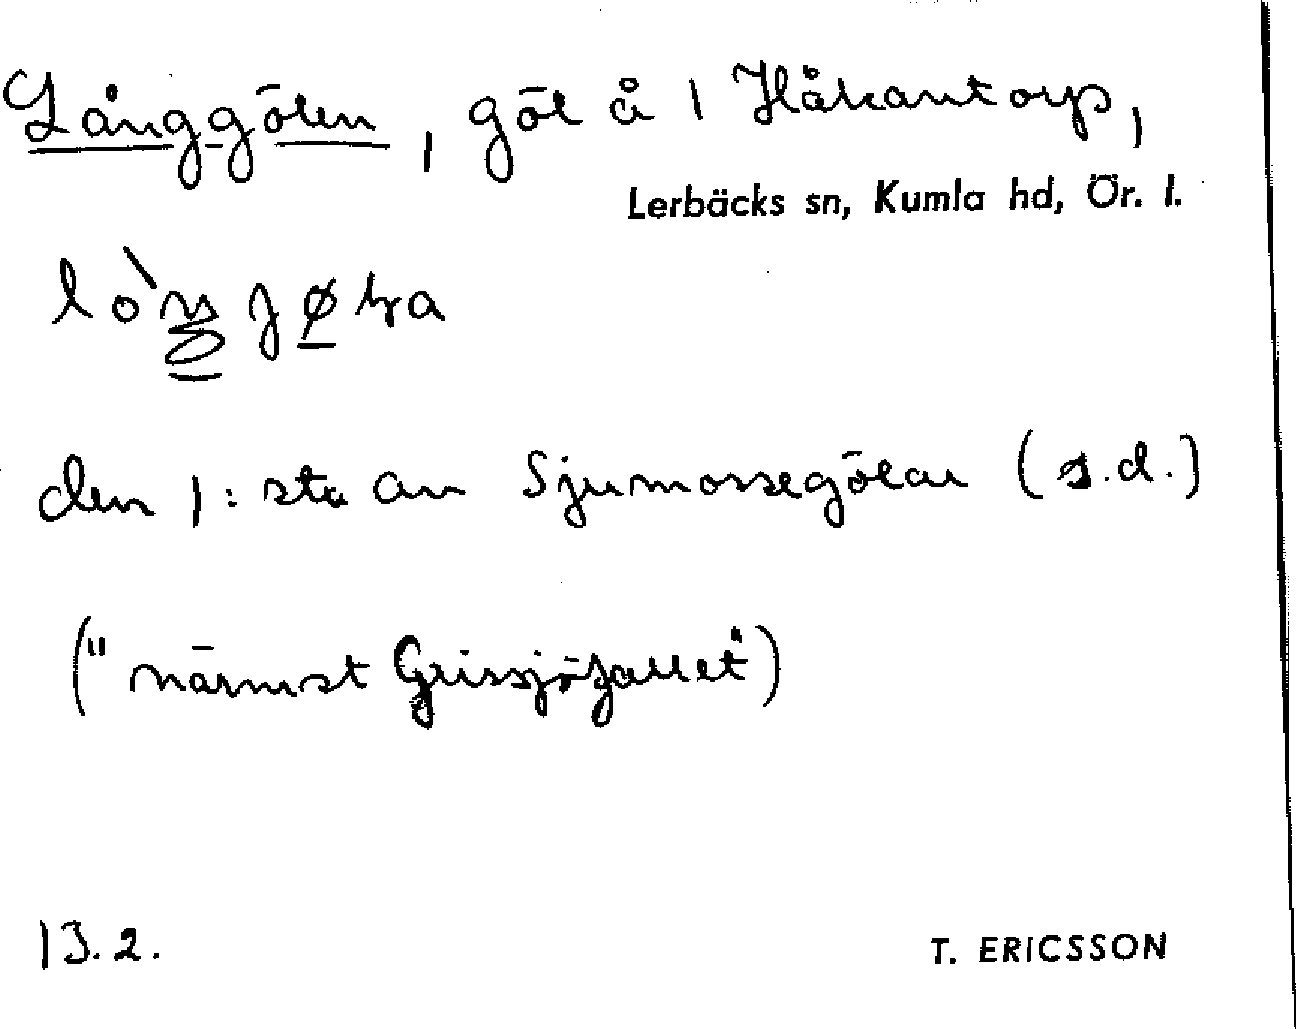 Långgölen, göl å 1 Håkantorp,
Lerbäcks sn, Kumla hd, Ör. l.
den 1:sta av Sjumossegölar (s.d.)
("närmst Grissjöfallet")
13.2.
T. ERICSSON